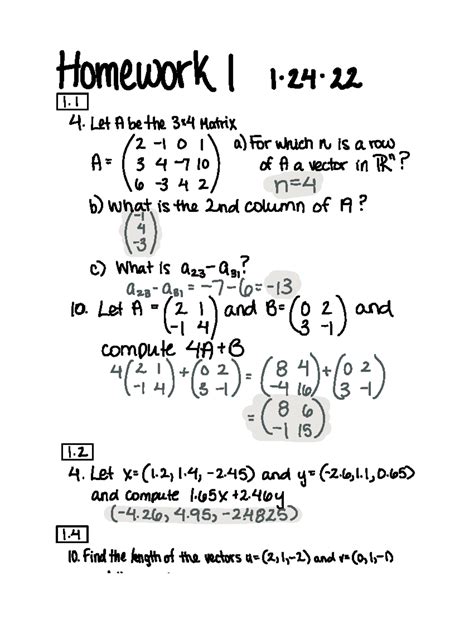 Homework 1 1·24·22
1.1
4. Let A be the 3x4 Matrix
A = (2 -1 0 1
3 4 -7 10
6 -3 4 2)
a) For which n is a row
of A a vector in ℝⁿ?
n=4
b) What is the 2nd column of A?
(-1
4
-3)
c) What is a₂₃-a₃₁?
a₂₃-a₃₁ = -7-6 = -13
10. Let A = (2 1
-1 4) and B = (0 2
3 -1) and
compute 4A+B
4(2 1
-1 4) + (0 2
3 -1) = (8 4
-4 16) + (0 2
3 -1)
= (8 6
-1 15)
1.2
4. Let x=(1.2, 1.4, -2.45) and y=(-2.6, 1.1, 0.65)
and compute 1.65x+2.46y
(-4.26, 4.95, -24825)
1.4
10. Find the length of the vectors u=(2,1,-2) and v=(0,1,-1)